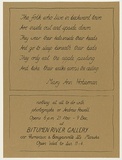 The folk who live in Backward Town
Are inside out and upside down.
They wear their hats inside their heads
And go to sleep beneath their beds.
They only eat the apple peeling
And take their walks across the ceiling.
Mary Ann Hoberman
nothing at all to do with
photographs by Andrew
Opens 6 pm 21 Mar - 9 Dec.
at
BITUMEN RIVER GALLERY
Manuka
Open